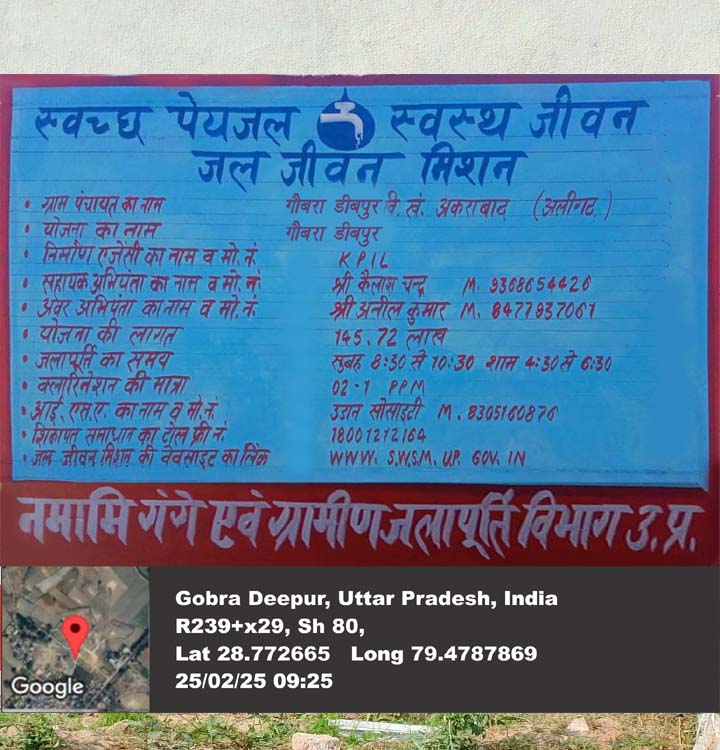 स्वच्छ पेयजल स्वस्थ जीवन
जल जीवन मिशन
• ग्राम पंचायत का नाम गौबरा डीबपुर वि. खं. अकराबाद (अलीगढ़)
• योजना का नाम गौबरा डीबपुर
• निर्माण एजेंसी का नाम व मो. नं. KPIL
• सहायक अभियंता का नाम व मो. नं. श्री कैलाश चन्द्र M. 9368654426
• अवर अभियंता का नाम व मो. नं. श्री अनील कुमार M. 8477937061
• योजना की लागत 145.72 लाख
• जलापूर्ति का समय सुबह 8:30 से 10:30 शाम 4:30 से 6:30
• क्लारिनेशन की मात्रा 02-1 PPM
• आई. एस. ए. का नाम व मो. नं. उडान सोसाइटी M. 8305160876
• शिकायत समाधान का टोल फ्री नं. 18001212164
• जल जीवन मिशन की वेबसाइट का लिंक WWW. S.W.S.M. UP. GOV. IN
नमामि गंगे एवं ग्रामीण जलापूर्ति विभाग उ.प्र.
Gobra Deepur, Uttar Pradesh, India
R239+x29, Sh 80,
Lat 28.772665 Long 79.4787869
25/02/25 09:25
Google